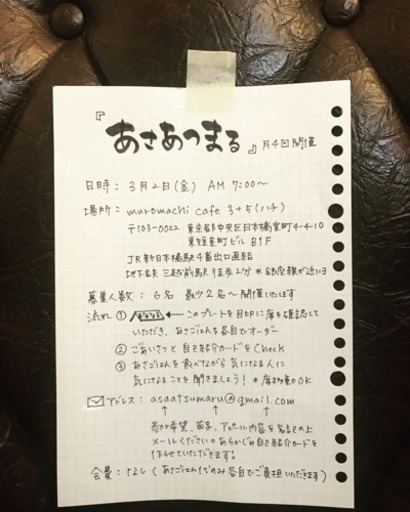 『あさあつまる』月4回開催
日時： 3月2日(金) AM 7:00〜
場所： muromachi cafe 3+5(ハチ)
〒103-0022 東京都中央区日本橋室町4-4-10
東短室町ビル B1F
JR新日本橋駅4番出口直結
地下鉄 三越前駅 徒歩2分 ※銀座線が近いヨ
募集人数： 6名 最少2名〜開催いたします
流れ ① ← このプレートを目印に席を確認して
いただき、あさごはんを各自でオーダー
② ごあいさつと自己紹介カードをCheck
③ あさごはんを食べながら気になる人に
気になることを聞きましょう！ ※席移動OK
アドレス： asaatsumaru@gmail.com
↑ ↑ ↑
参加希望、苗字、アピール内容を名記の上
メールください。あらかじめ自己紹介カードを
作らせていただきます。
会費： なし (あさごはん代のみ各自でご負担いただきます)